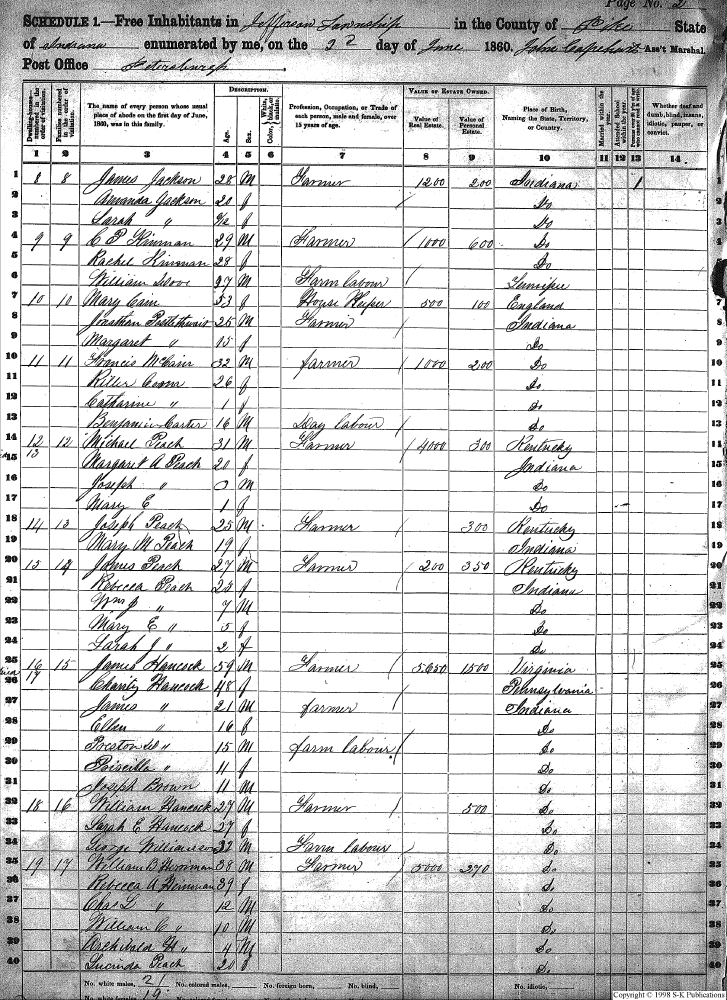 Page No. 2
SCHEDULE 1.—Free Inhabitants in Jefferson Township in the County of Pike State
of Indiana enumerated by me, on the 2d day of June 1860. John Capehart Ass't Marshal.
Post Office Petersburgh
Dwelling-houses—numbered in the order of visitation.
Families numbered in the order of visitation.
The name of every person whose usual place of abode on the first day of June, 1860, was in this family.
DESCRIPTION.
Age.
Sex.
Color, White, black, or mulatto.
Profession, Occupation, or Trade of each person, male and female, over 15 years of age.
VALUE OF ESTATE OWNED.
Value of Real Estate.
Value of Personal Estate.
Place of Birth, Naming the State, Territory, or Country.
Married within the year.
Attended School within the year.
Persons over 20 y'rs of age who cannot read & write.
Whether deaf and dumb, blind, insane, idiotic, pauper, or convict.
1 2 3 4 5 6 7 8 9 10 11 12 13 14
1 8 8 James Jackson 28 M Farmer 1200 200 Indiana / 1
2 Amanda Jackson 20 f Do 2
3 Sarah " 9/12 f Do 3
4 9 9 C P Hinman 29 M Farmer 1000 600 Do 4
5 Rachel Hinman 28 f Do 5
6 William 27 M Farm labour 6
7 10 10 Mary Cain 53 f House Keeper 500 100 England 7
8 Jonathan 25 M Farmer Indiana 8
9 Margaret " 15 f Do 9
10 11 11 Francis McCain 32 M farmer 1000 200 Do 10
11 26 f Do 11
12 Catharine " 1 f Do 12
13 Benjamin Carter 16 M Day labour Do 13
14 12 12 Michael Peach 31 M Farmer 4000 300 Kentucky 14
15 13 Margaret A Peach 20 f Indiana 15
16 Joseph " M Do 16
17 Mary E 1 f Do 17
18 14 13 Joseph Peach 25 M Farmer 300 Kentucky 18
19 Mary M Peach 19 f Indiana 19
20 15 14 James Peach 27 M Farmer 200 350 Kentucky 20
21 Rebecca Peach 25 f Indiana 21
22 Wm J " 7 M Do 22
23 Mary E " 5 f Do 23
24 Sarah J " 2 f Do 24
25 16 15 James Hancock 59 M Farmer 5650 1500 Virginia 25
26 17 Charity Hancock 48 f Pennsylvania 26
27 James " 21 M farmer Indiana 27
28 Ellen " 16 f Do 28
29 Preston " 15 M farm labour Do 29
30 Priscilla " 11 f Do 30
31 Joseph Brown 11 M Do 31
32 18 16 William Hancock 27 M Farmer 500 Do 32
33 Sarah E Hancock 27 f Do 33
34 George Williamson 32 M Farm labour Do 34
35 19 17 William B Herriman 38 M Farmer 5000 270 Do 35
36 Rebecca A Herriman 39 f Do 36
37 Chas L " 12 M Do 37
38 William C " 10 M Do 38
39 Archibald H " 4 M Do 39
40 Lucinda Peach 20 f Do 40
No. white males, 21 No. colored males, No. foreign born, No. blind, No. idiotic,
No. white females, 19
Copyright © 1998 S-K Publications